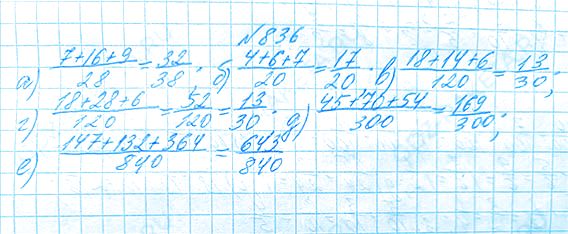 №836
а) (7+16+9)/28 = 32/38. б) (4+6+7)/20 = 17/20. в) (18+14+6)/120 = 13/30;
г) (18+28+6)/120 = 52/120 = 13/30. д) (45+70+54)/300 = 169/300;
е) (147+132+364)/840 = 643/840